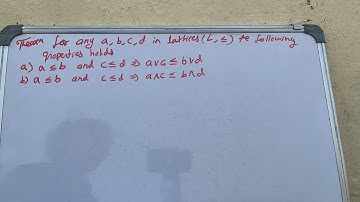 Theorem for any a, b, c, d in lattices (L, ≤) the following
properties holds
a) a ≤ b and c ≤ d ⇒ a∨c ≤ b∨d
b) a ≤ b and c ≤ d ⇒ a∧c ≤ b∧d